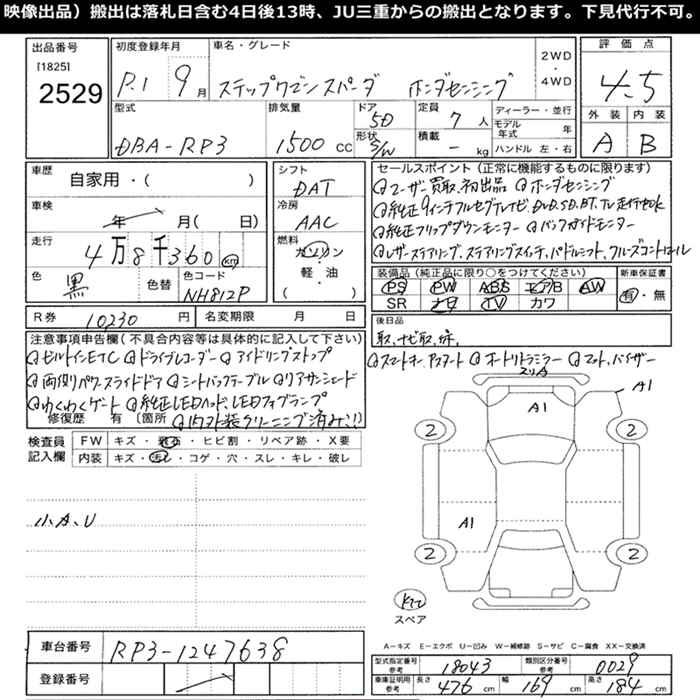 映像出品）搬出は落札日含む4日後13時、JU三重からの搬出となります。下見代行不可。
出品番号 初度登録年月 車名・グレード 2WD 評価点
[1825]
2529 R.1 9月 ステップワゴンスパーダ ホンダセンシング ・4WD 4.5
型式 排気量 ドア 定員 ディーラー・並行 外装 内装
DBA-RP3 1500cc 5D 7人 モデル年式 年 A B
形状 S/W 積載 - kg ハンドル 左・右
車歴 シフト セールスポイント（正常に機能するものに限ります）
自家用・( ) DAT ◎ユーザー買取、初出品 ◎ホンダセンシング
車検 冷房 ◎純正9インチフルセグTVナビ、DVD、SD、BT、TV走行中OK
年 月( 日) AAC ◎純正フリップダウンモニター ◎バックガイドモニター
走行 燃料 ◎レザーステアリング、ステアリングスイッチ、パドルシフト、クルーズコントロール
4万8千360km ガソリン・軽・油 ( )
装備品（純正品に限り○をつけてください） 新車保証書
色 黒 色替 色コード NH812P PS PW ABS エアB AW 有・無
SR ナビ TV カワ
R券 10230円 名変期限 月 日 後日品
取、ナビ取、保、
注意事項申告欄(不具合内容等は具体的に記入して下さい) ◎スマートキー、Pスタート ◎オートリトラミラー ◎マット、バイザー
◎ビルトインETC ◎ドライブレコーダー ◎アイドリングストップ
◎両側パワースライドドア ◎シートバックテーブル ◎リアサンシェード
◎わくわくゲート ◎純正LEDヘッド、LEDフォグランプ
修復歴 有 〔箇所 ◎内外装クリーニング済み!!
検査員記入欄 FW キズ・飛石・ヒビ割・リペア跡・X要
内装 キズ・汚れ・コゲ・穴・スレ・キレ・破レ
小A、U
A1
A1
2 2
A1
2 2
スペア
車台番号 RP3-1247638
登録番号
A−キズ E−エクボ U−凹み W−補修跡 S−サビ C−腐食 XX−交換済
型式指定番号 参考 18043 類別区分番号 参考 0029
車庫証明用 参考 長さ 476 cm 幅 169 cm 高さ 184 cm